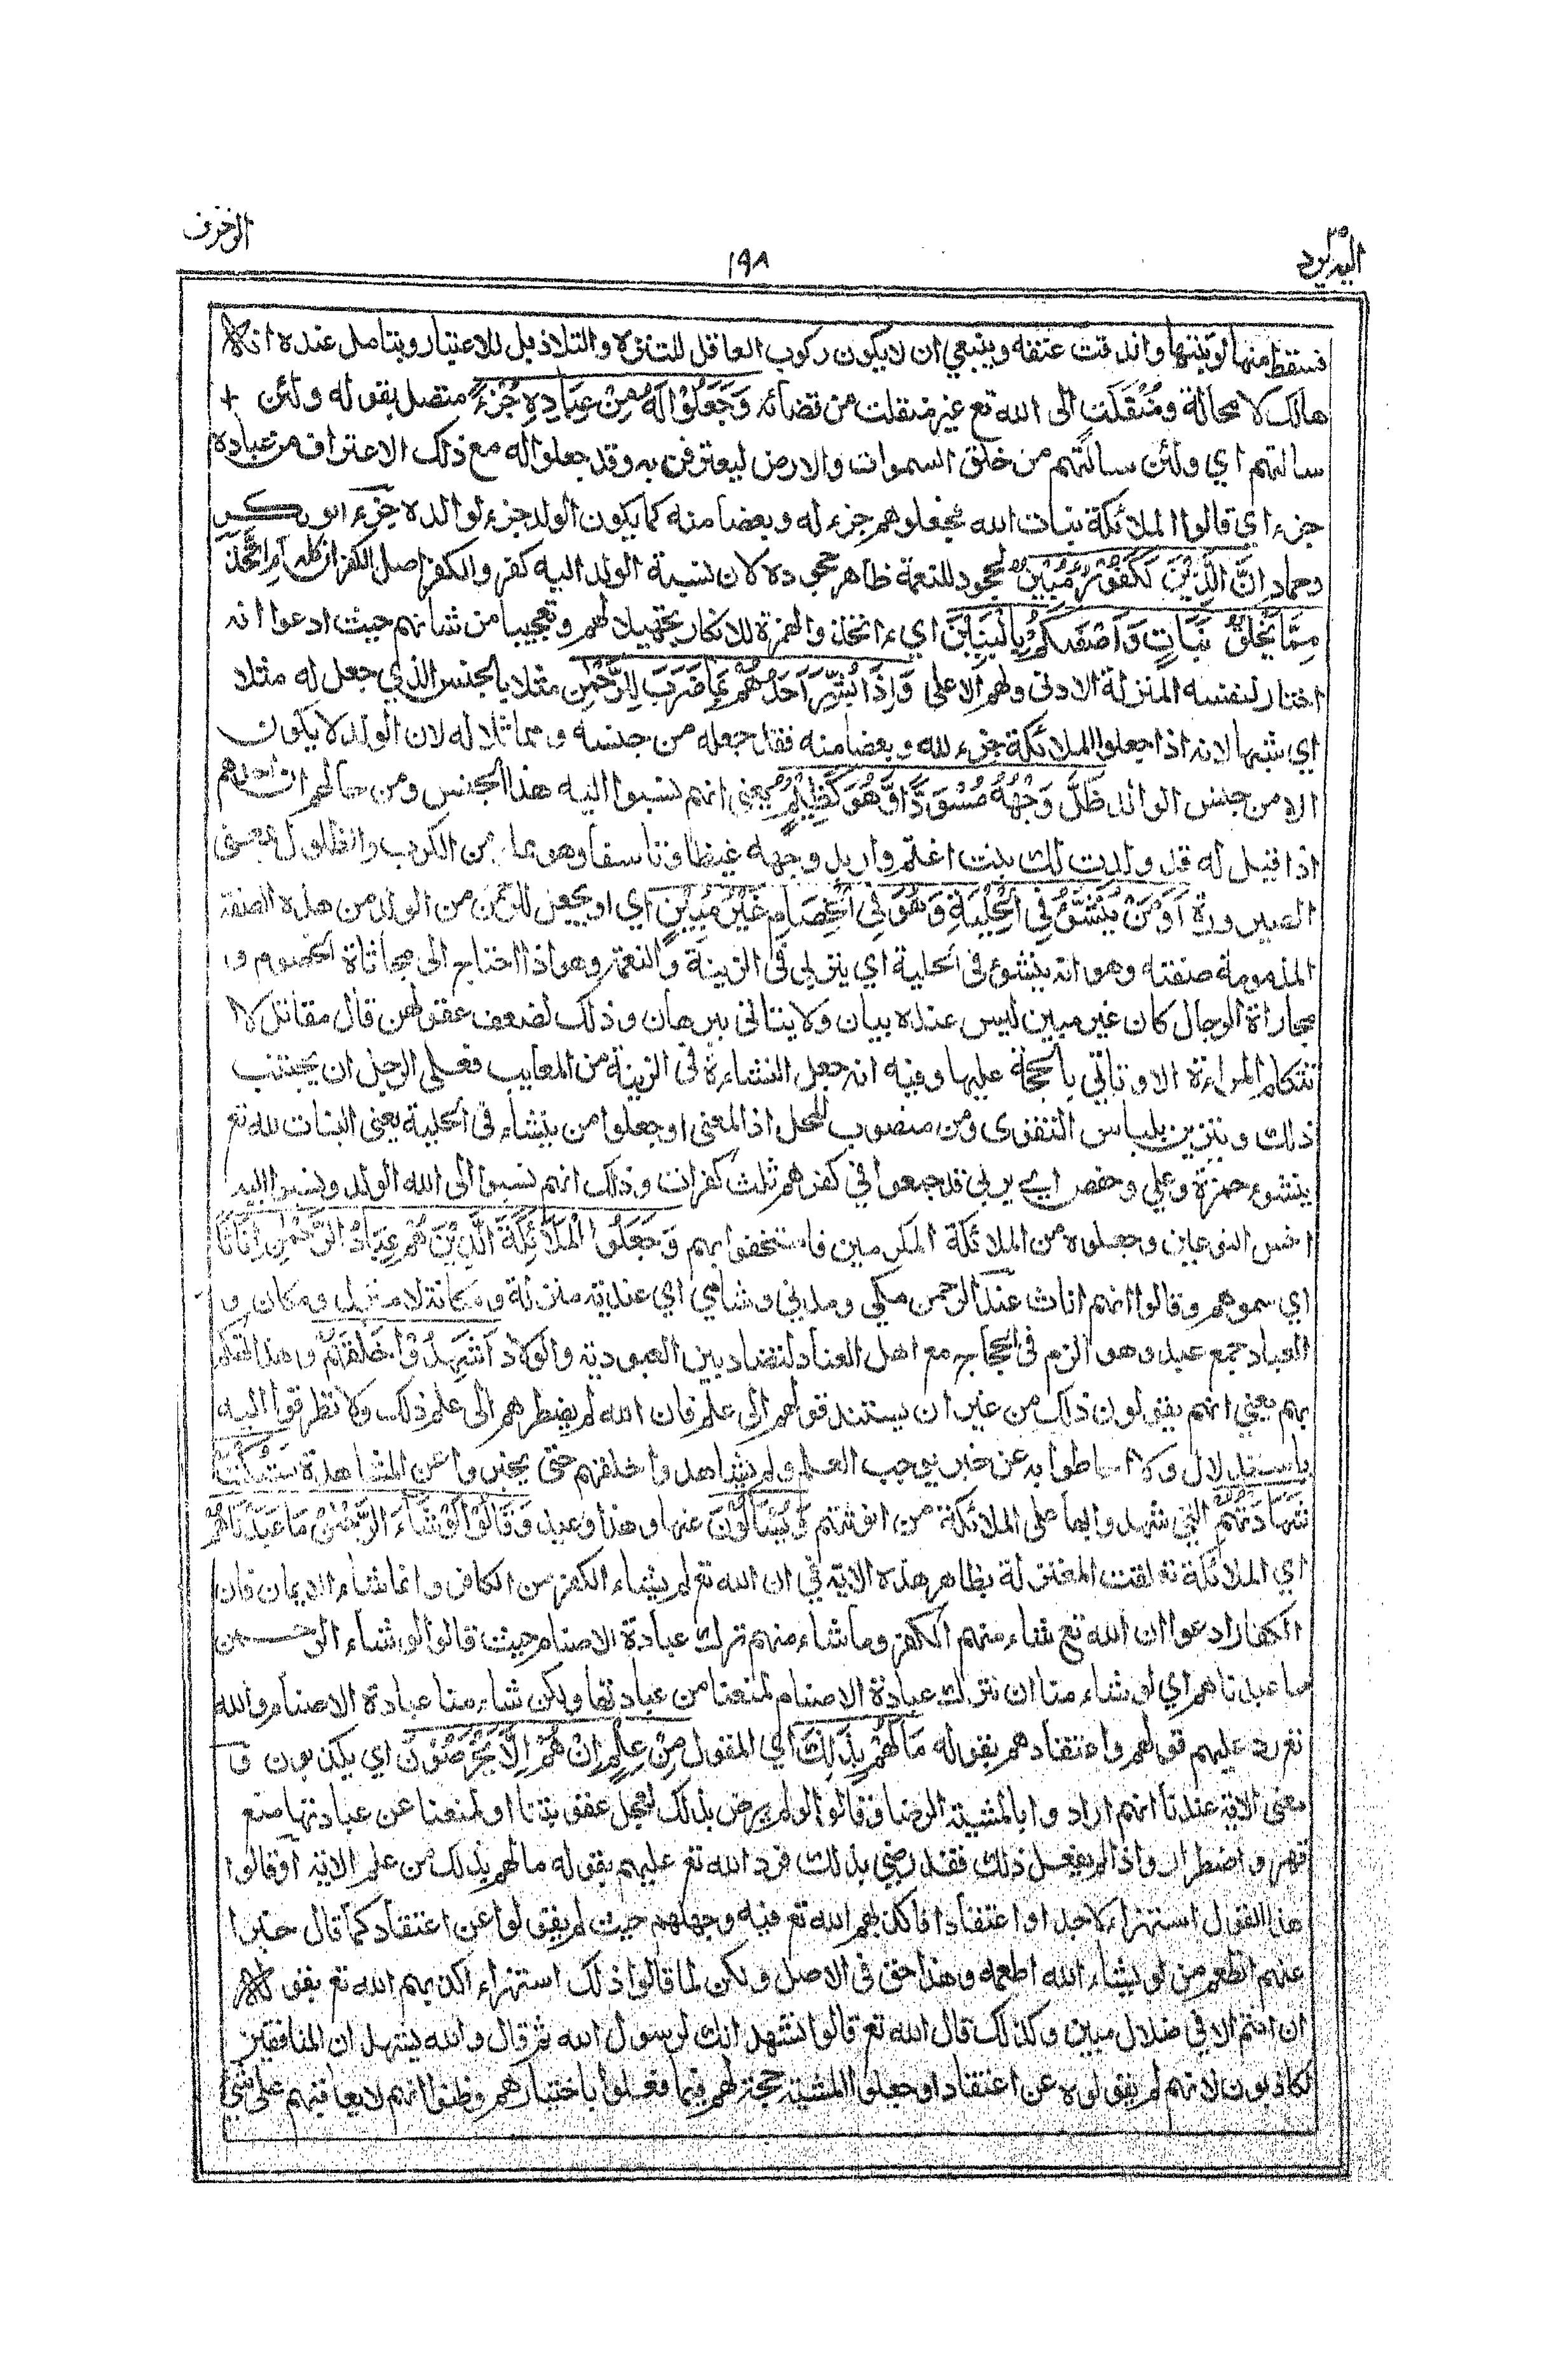 اليه يرد ٢٥
١٩٨
الزخرف
فسقط منها لوثبتها واندقت عنقه وينبغي ان لا يكون ركوب العاقل للتنزه والتلاذ بل للاعتبار ويتأمل عنده انه
هالك لا محالة ومنقلب الى الله تع غير منقلت من قضائه وَجَعَلُوْا لَهٗ مِنْ عِبَادِهٖ جُزْءًا متصل بقوله ولئن
سالتهم اي ولئن سالتهم من خلق السموات والارض ليعترفن به وقد جعلوا له مع ذلك الاعتراف من عباده
جزءا اي قالوا الملائكة بنات الله فجعلوهم جزء له وبعضا منه كما يكون الولد جزء لوالده جزء ابو بكر
وحماد اِنَّ الَّذِيْنَ لَكَفُوْرٌ مُّبِيْنٌ لجحود للنعمة ظاهر جحوده لان نسبة الولد اليه كفر والكفر اصل الكفران كله اَمِ اتَّخَذَ
مِمَّا يَخْلُقُ بَنَاتٍ وَّاَصْفٰىكُمْ بِالْبَنِيْنَ اي ءاتخذ والهمزة للانكار تجهيلا لهم وتعجيبا من شانهم حيث ادعوا انه
اختار لنفسه المنزلة الادنى ولهم الاعلى وَاِذَا بُشِّرَ اَحَدُهُمْ بِمَا ضَرَبَ لِلرَّحْمٰنِ مثلا بالجنس الذي جعل له مثلا
اي شبها لانه اذا جعلوا الملائكة جزء لله وبعضا منه فقد جعله من جنسه ومماثلا له لان الولد لا يكون
الا من جنس الوالد ظَلَّ وَجْهُهٗ مُسْوَدًّا وَّهُوَ كَظِيْمٌ يعني انهم نسبوا اليه هذا الجنس ومن حالهم ان احدهم
اذا قيل له قد ولدت لك بنت اغتم واربد وجهه غيظا وتأسفا وهو مملو من الكرب والظلول بمعنى
الصيرورة اَوَمَنْ يُّنَشَّؤُ فِي الْحِلْيَةِ وَهُوَ فِي الْخِصَامِ غَيْرُ مُبِيْنٍ اي او يجعل للرحمن من الولد من هذه الصفة
المذمومة صفته وهو انه ينشؤ في الحلية اي يتربى في الزينة والنعمة وهو اذا احتاج الى مجاثاة الخصوم و
مجاراة الرجال كان غير مبين ليس عنده بيان ولا يتاتى ببرهان وذلك لضعف عقولهن قال مقاتل لا
تتكلم المراءة الا وتأتي بالحجة عليها وفيه انه جعل النشاءة في الزينة من المعايب فعلى الرجل ان يجتنب
ذلك ويتزين بلباس التقوى ومن منصوب المحل اذ المعنى او جعلوا من ينشاء في الحلية يعنى البنات لله تع
ينشؤ حمزة وعلي وحفص اي يربي قد جمعوا في كفرهم ثلث كفرات وذلك انهم نسبوا الى الله الولد ونسبوا اليه
اخس النوعين وجعلوه من الملائكة المكرمين فاستخفوا بهم وَجَعَلُوا الْمَلٰٓئِكَةَ الَّذِيْنَ هُمْ عِبَادُ الرَّحْمٰنِ اِنَاثًا
اي سموهم وقالوا انهم اناث عند الرحمن مكي ومدني وشامي اي عندية منزلة ومكانة لا منزل ومكان و
العباد جمع عبد وهو الزم في الحجاج مع اهل العناد لتضاد بين العبودية والولاد اَشَهِدُوْا خَلْقَهُمْ وهذا تهكم
بهم يعني انهم يقولون ذلك من غير ان يستند قولهم الى علم فان الله لم يضطرهم الى علم ذلك ولا تطرقوا اليه
باستدلال ولا احاطوا به عن خبر يوجب العلم ولم يشاهدوا خلقهم حتى يخبروا عن المشاهدة سَتُكْتَبُ
شَهَادَتُهُمْ التي شهدوا بها على الملائكة من انوثتهم وَيُسْـَٔلُوْنَ عنها وهذا وعيد وَقَالُوْا لَوْ شَآءَ الرَّحْمٰنُ مَا عَبَدْنٰهُمْ
اي الملائكة تعلقت المعتزلة بظاهر هذه الاية في ان الله تع لم يشاء الكفر من الكافر وانما شاء الايمان فان
الكفار ادعوا ان الله تع شاء منهم الكفر وما شاء منهم ترك عبادة الاصنام حيث قالوا لو شاء الرحمن
ما عبدناهم اي لو شاء منا ان نترك عبادة الاصنام لمنعنا من عبادتها ولكن شاء منا عبادة الاصنام والله
تع رد عليهم قولهم واعتقادهم بقوله مَا لَهُمْ بِذٰلِكَ اي المقول مِنْ عِلْمٍ اِنْ هُمْ اِلَّا يَخْرُصُوْنَ اي يكذبون و
معنى الاية عندنا انهم ارادوا بالمشية الرضا وقالوا لو لم يرض بذلك لعجل عقوبتنا او لمنعنا عن عبادتها منع
قهر واضطرار واذا لم يفعل ذلك فقد رضي بذلك فرد الله تع عليهم بقوله ما لهم بذلك من علم الاية او قالوا
هذا القول استهزاء لا جدا واعتقادا فاكذبهم الله تع فيه وجهلهم حيث لم يقولوا عن اعتقاد كما قال خبرا
عنهم انطعم من لو يشاء الله اطعمه وهذا حق في الاصل ولكن لما قالوا ذلك استهزاء اكذبهم الله تع بقوله
ان انتم الا في ضلال مبين وكذلك قال الله تع قالوا نشهد انك لرسول الله ثم قال والله يشهد ان المنافقين
لكاذبون لانهم لم يقولوه عن اعتقاد او جعلوا المشية حجة لهم فيما فعلوا باختيارهم وظنوا انهم لا يعاقبهم على شئ